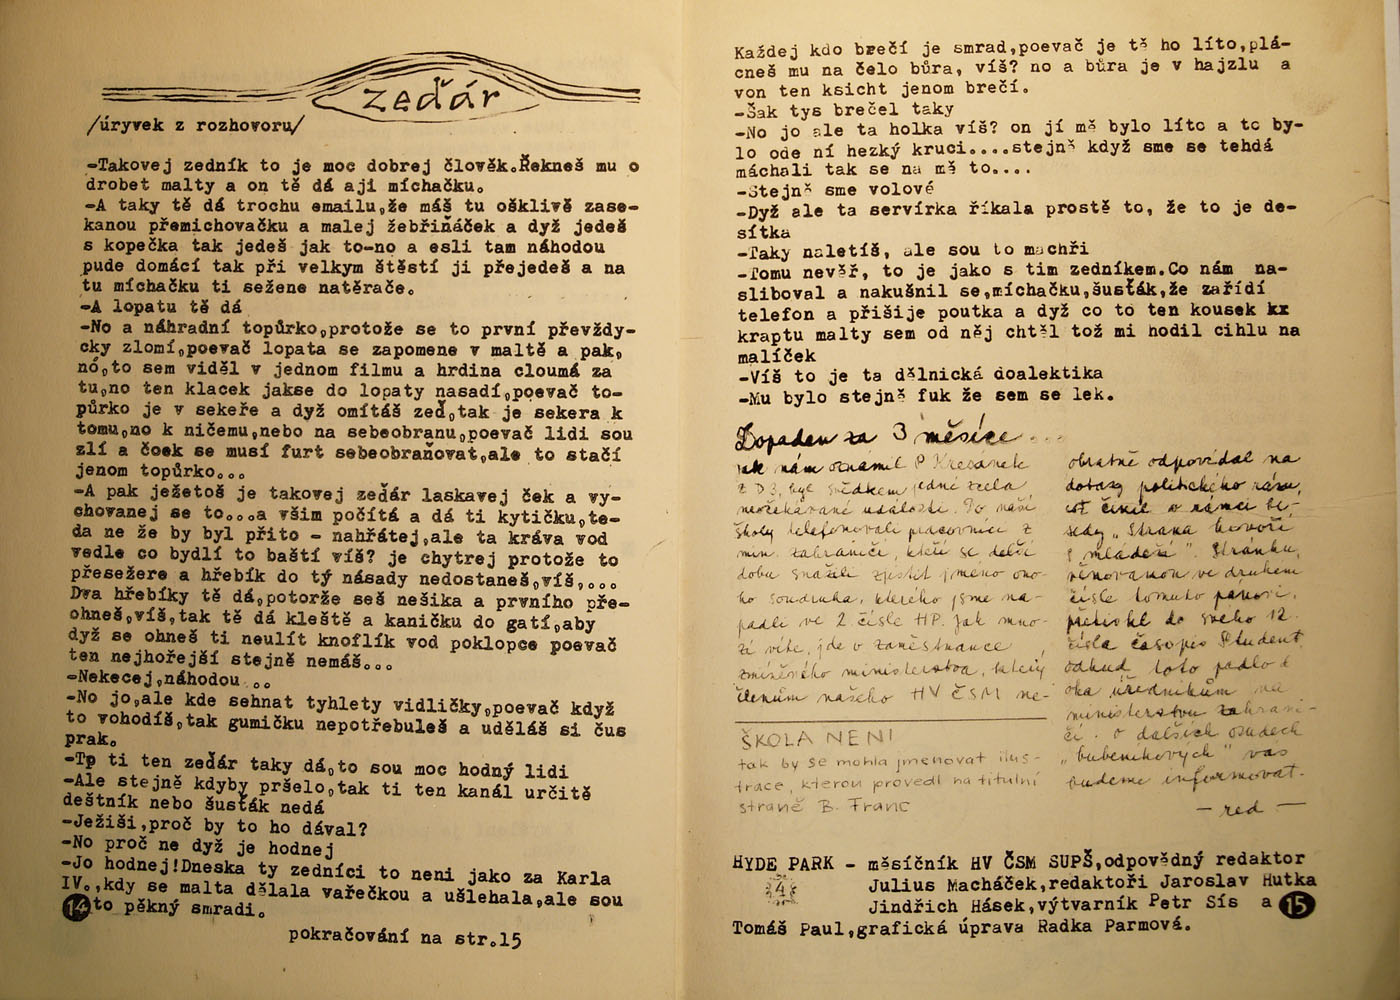 zeďár
/úryvek z rozhovoru/
-Takovej zedník to je moc dobrej člověk.Řekneš mu o
drobet malty a on tě dá aji míchačku.
-A taky tě dá trochu emailu,že máš tu ošklivě zase-
kanou přemichovačku a malej žebřiňáček a dyž jedeš
s kopečka tak jedeš jak to-no a esli tam náhodou
pude domácí tak při velkym štěstí ji přejedeš a na
tu míchačku ti sežene natěrače.
-A lopatu tě dá
-No a náhradní topůrko,protože se to první převždy-
cky zlomí,poevač lopata se zapomene v maltě a pak,
nó,to sem viděl v jednom filmu a hrdina cloumá za
tu,no ten klacek jakse do lopaty nasadí,poevač to-
půrko je v sekeře a dyž omítáš zeď,tak je sekera k
tomu,no k ničemu,nebo na sebeobranu,poevač lidi sou
zlí a čoek se musí furt sebeobraňovat,ale to stačí
jenom topůrko...
-A pak ježetoš je takovej zeďár laskavej ček a vy-
chovanej se to....a všim počítá a dá ti kytičku,te-
da ne že by byl příto - nahřátej,ale ta kráva vod
vedle co bydlí to baští víš? je chytrej protože to
přesežere a hřebík do tý násady nedostaneš,víš,...
Dva hřebíky tě dá,potorže seš nešika a prvního pře-
ohneš,víš,tak tě dá kleště a kaničku do gatí,aby
dyž se ohneš ti neulít knoflík vod poklopce poevač
ten nejhořejší stejně nemáš...
-Nekecej,náhodou ..
-No jo,ale kde sehnat tyhlety vidličky,poevač když
to vohodíš,tak gumičku nepotřebuleš a uděláš si čus
prak.
-Tp ti ten zeďár taky dá,to sou moc hodný lidi
-Ale stejně kdyby pršelo,tak ti ten kanál určitě
deštník nebo šusták nedá
-Ježiši,proč by to ho dával?
-No proč ne dyž je hodnej
-Jo hodnej!Dneska ty zedníci to neni jako za Karla
IV.,kdy se malta dělala vařečkou a ušlehala,ale sou
14 to pěkný smradi.
pokračování na str.15
Každej kdo brečí je smrad,poevač je tě ho líto,plá-
cneš mu na čelo bůra, víš? no a bůra je v hajzlu a
von ten ksicht jenom brečí.
-Šak tys brečel taky
-No jo ale ta holka víš? on jí mě bylo líto a to by-
lo ode ní hezký kruci....stejně když sme se tehdá
máchali tak se na mě to....
-Stejně sme volové
-Dyž ale ta servírka říkala prostě to, že to je de-
sítka
-Taky naletíš, ale sou to machři
-Tomu nevěř, to je jako s tim zedníkem.Co nám na-
sliboval a nakušnil se,míchačku,šusták,že zařídí
telefon a přišije poutka a dyž co to ten kousek kx
kraptu malty sem od něj chtěl tož mi hodil cihlu na
malíček
-Víš to je ta dělnická doalektika
-Mu bylo stejně fuk že sem se lek.
Dopaden za 3 měsíce...
jak nám oznámil P Kresánek
z D3, byl svědkem jedné zcela
neočekávané události. Do naší
školy telefonovali pracovníci z
min. zahraničí, kteří se delší
dobu snažili zjistit jméno ono-
ho soudruha, kterého jsme na-
padli ve 2 čísle HP. Jak mno-
zí víte, jde o zaměstnance
zmíněného ministerstva, který
členům našeho HV ČSM ne-
obratně odpovídal na
dotazy politického rázu,
což činil v rámci be-
sedy „Strana hovoří
s mládeží". Stránku,
věnovanou ve druhém
čísle tomuto panovi,
přetiskl do svého 12.
čísla časopis Student
odkud toto padlo do
oka úředníkům na
ministerstvu zahrani-
čí. O dalších osudech
„bubeníkových" vás
budeme informovat.
- red -
ŠKOLA NENI
tak by se mohla jmenovat ilus-
trace, kterou provedl na titulní
straně B. Franc
HYDE PARK - měsíčník HV ČSM SUPŠ,odpovědný redaktor
4 Julius Macháček,redaktoři Jaroslav Hutka
Jindřich Hásek,výtvarník Petr Sís a 15
Tomáš Paul,grafická úprava Radka Parmová.